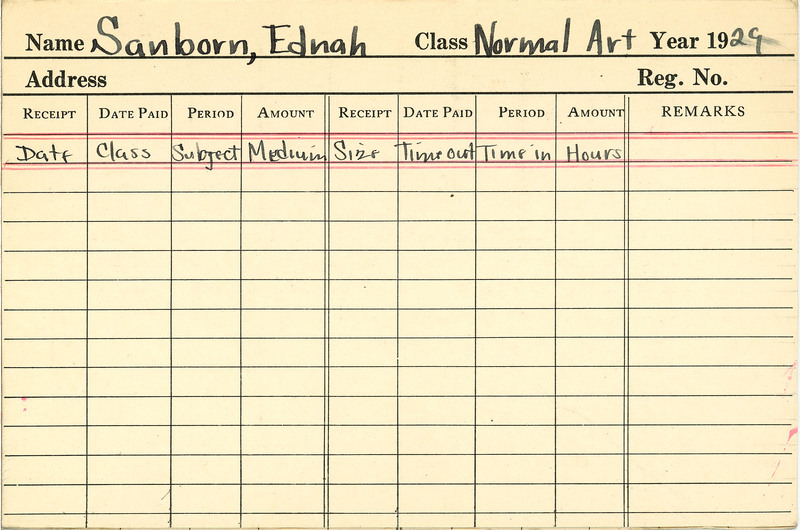 Name Sanborn, Ednah Class Normal Art Year 1929
Address Reg. No.
RECEIPT DATE PAID PERIOD AMOUNT RECEIPT DATE PAID PERIOD AMOUNT REMARKS
Date Class Subject Medium Size Time out Time in Hours